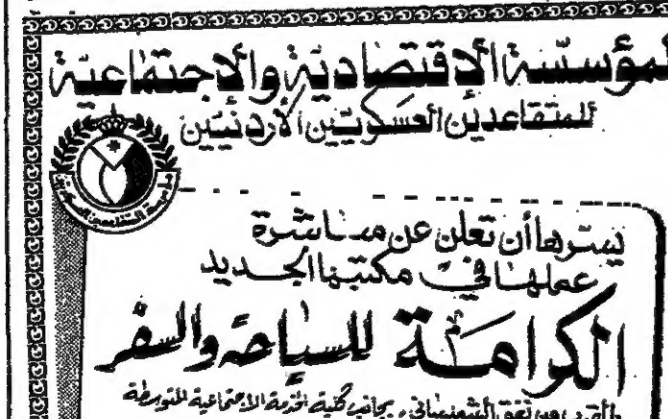 المؤسسة الاقتصادية والاجتماعية
للمتقاعدين العسكريين الأردنيين
يسرها أن تعلن عن مباشرة
عملها في مكتبها الجديد
الكرامة للسياحة والسفر
بالقرب من نفق الشميساني، بجانب كلية الخدمة الاجتماعية المتوسطة